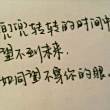 兜兜转转的时间中
望不到未来,
如同望不穿你的眼。